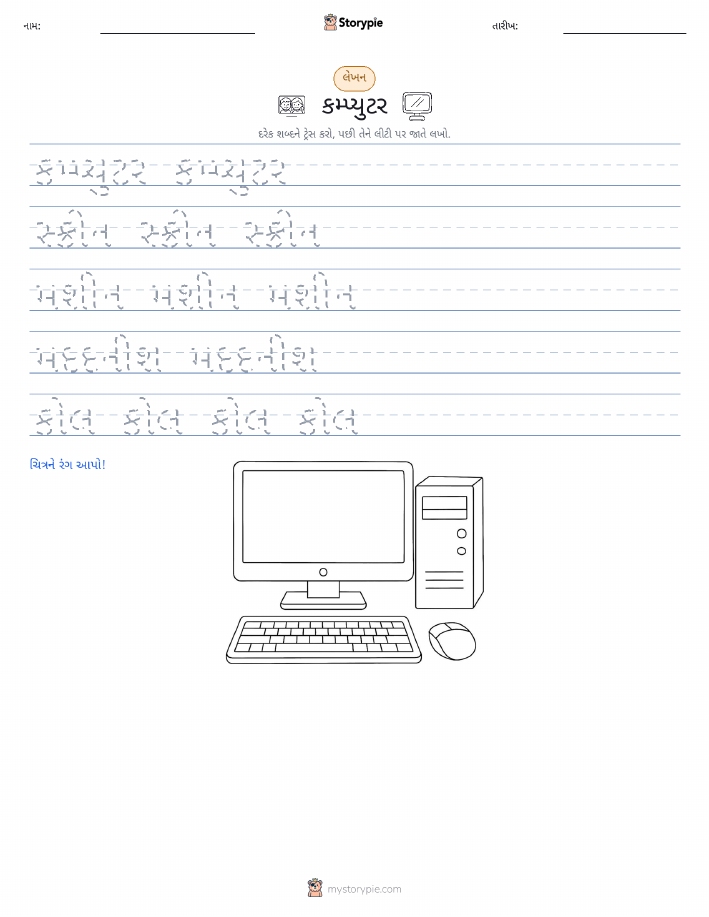 નામ:
Storypie
તારીખ:
લેખન
કમ્પ્યુટર
દરેક શબ્દને ટ્રેસ કરો, પછી તેને લીટી પર જાતે લખો.
કમ્પ્યુટર કમ્પ્યુટર
સ્ક્રીન સ્ક્રીન સ્ક્રીન
મશીન મશીન મશીન
મદદનીશ મદદનીશ
કોલ કોલ કોલ કોલ
ચિત્રને રંગ આપો!
mystorypie.com